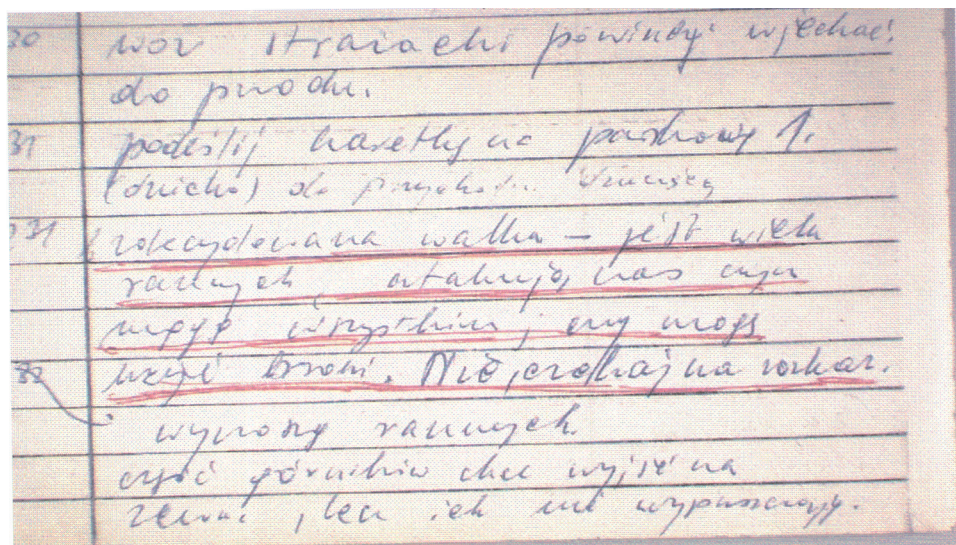 30 wor strażacki powinny wjechać
do przodu.
31 podeślij karetkę na parkowy 1.
(cicho) do przychodni
31 zdecydowana walka – jest wielu
rannych, atakują nas czym
mogą wszystkim, czy mogę
użyć broni. Nie, czekaj na rozkaz.
32 wynoszą rannych.
część górników chce wyjść na
zewn. , lecz ich nie wypuszczają.